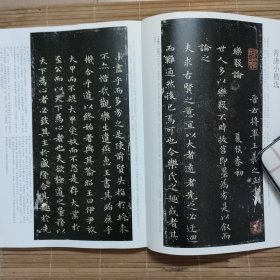 晉右將軍王羲之書
樂毅論
夏侯泰初
世人多以樂毅不時拔莒即墨為劣是以叙而
論之
夫求古賢之意宜以大者遠者先之必迂迴
而難通然後已焉可也今樂氏之趣或者其
未盡乎而多劣之是使前賢失指於將來
不亦惜哉觀樂生遺燕惠王書其殆庶乎
機合乎道以終始者與其喻昭王曰伊尹放
大甲而不疑大甲受放而不怨是存大業於
至公而以天下為心者也夫欲極道之量務以
天下為心者必致其主於盛隆合其趣於